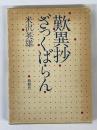 歎異抄
ざっくばらん
米沢英雄